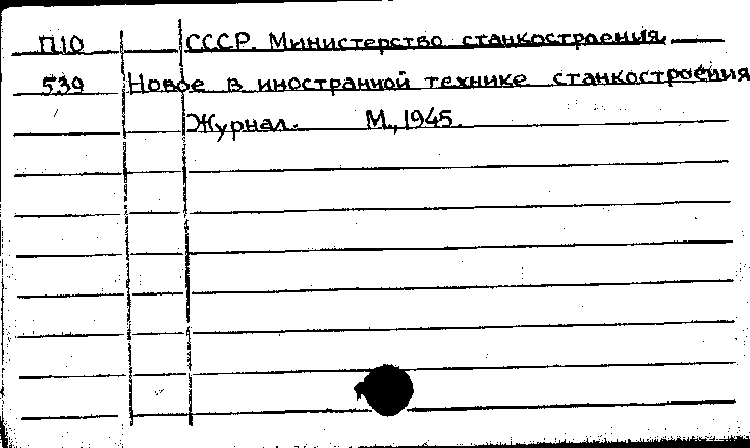 П10 СССР. Министерство станкостроения.
539 Новое в иностранной технике станкостроения
Журнал. М., 1945.